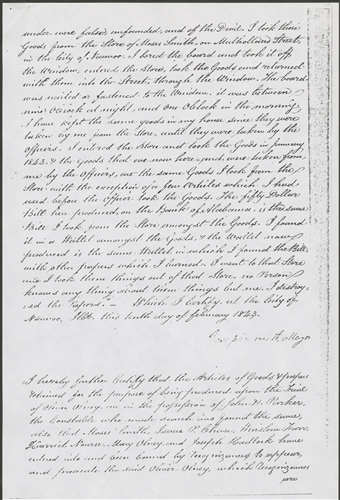 under were false unfounded, and of the Devil. I took these
Goods from the Store of Moses Smith, on Mulholland Street,
in the City of Nauvoo. I bored the board and took it off
the Window, entered the Store, took the Goods and returned
with them into the Street, through the Window. The board
was nailed or fastened to the Window. it was between
nine O'clock at night, and one O'clock in the morning.
I have kept the same goods in my house since they were
taken by me from the Store, until they were taken by the
Officers. I entered the Store and took the Goods in January
1843. & the Goods that are now here, and were taken from
me by the Officers, are the same Goods I took from the
Store with the exception of a few Articles which I had
used before the Officer took the Goods. The fifty dollar
Bill here produced, on the Bank of Alabama, is the same
Bill I took from the Store amongst the Goods. I found
it in a Wallet amongst the Goods, & the Wallet now
produced is the same Wallet in which I found the Bill
with other papers which I burned. I went to that Store
and I took them things out of that Store, no Person
knows any thing about them things but me, I destroy
ed the papers." — Which I certify, at the City of
Nauvoo, Ills, this tenth day of february 1843.
Smith Mayor
I hereby further Certify that the Articles of Goods & papers
retained for the purpose of being produced upon the Trial
of Oliver Olney, are in the possession of John H. Parker,
the Constable who made search and found the same,
also that Moses Smith, James P.
Newel Nurse, Mary Olney, and Joseph Hadlock have
entered into and been bound by Recognizances to appear,
and prosecute the said Oliver Olney, which Recognizances
are